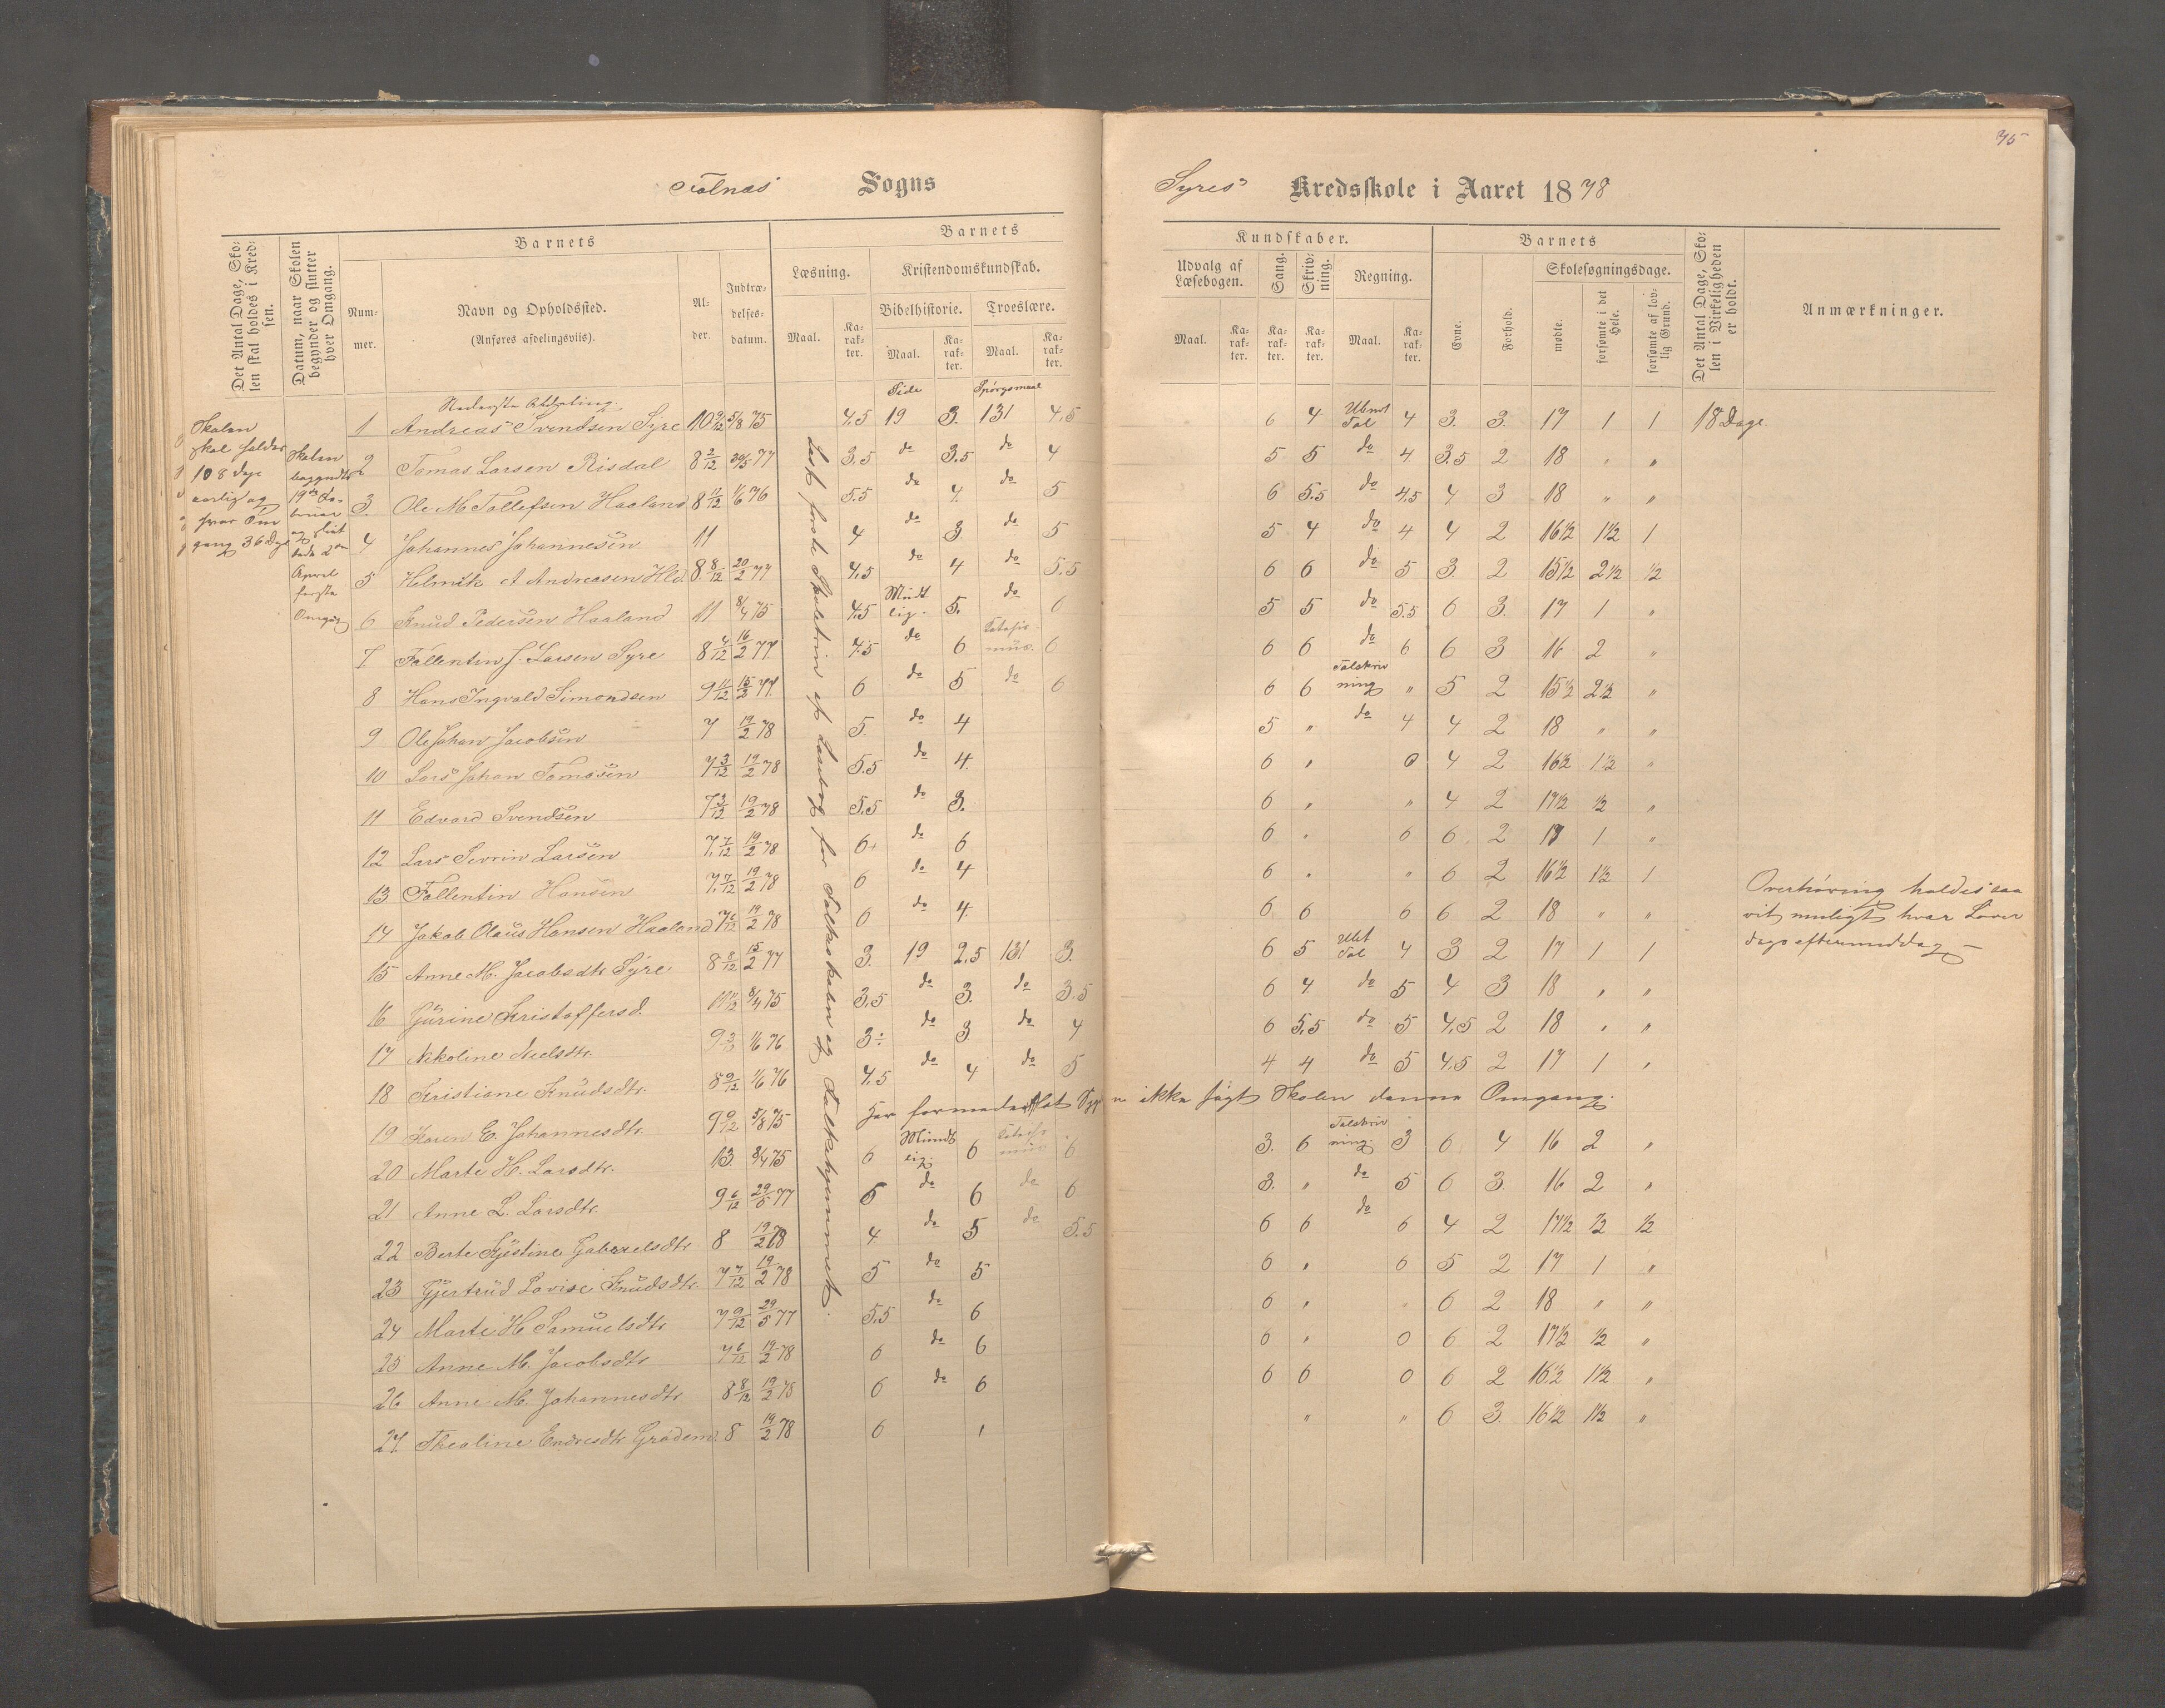 75
Falnæs Sogns
Syres Kredsskole i Aaret 1878
Det Antal Dage, Skolen skal holdes i Kredsen.
Datum, naar Skolen begynder og slutter hver Omgang.
Barnets
Nummer.
Navn og Opholdssted.
(Anføres afdelingsviis).
Alder.
Indtrædelsesdatum.
Barnets
Læsning.
Maal.
Karakter.
Kristendomskundskab.
Bibelhistorie.
Maal.
Karakter.
Troeslære.
Maal.
Karakter.
Kundskaber.
Udvalg af Læsebogen.
Maal.
Karakter.
Sang.
Karakter.
Skrivning.
Karakter.
Regning.
Maal.
Karakter.
Barnets
Evne.
Forhold.
Skolesøgningsdage.
mødte.
forsømte i det Hele.
forsømte af lovlig Grund.
Det Antal Dage, Skolen i Virkeligheden er holdt.
Anmærkninger.
Skolen
skal holdes
108 dage
aarlig og
hver Om
gang 36 Dage
Skolen
begyndte
19de Fe-
bruar
og slut
tede 2den
April
første
Omgang
Nederste Afdeling.
Side
Spørgsmaal
1 Andreas Svendsen Syre 10 9/12 5/8 75 4,5 19 3. 131 4,5 6 4 Ubnt Tal 4 3. 3. 17 1 1 18 Dage.
2 Tomas Larsen Risdal 8 2/12 29/5 77 3.5 do 3.5 do 4 5 5 do 4. 3.5 2 18 " "
3. Ole M Tollefsen Haaland 8 11/12 1/6 76 5.5 do 4. do 5 6 5.5 do 4,5 4 3 18 " "
4 Johannes Johannesen 11 4 do 3. do 5 5 4 do 4 4 2 16½ 1½ 1
5 Helmik A Andreasen Hld. 8 8/12 20/2 77 4,5 do 4 do 5.5 6 6 do 5 3. 2 15½ 2½ ½
6 Knud Pedersen Haaland 11 8/4 75 4,5 Mundt lig. 5. do 6 5 5 do 5.5 6 3. 17 1 "
7 Fallentin J. Larsen Syre 8 4/12 16/2 77 4.5 do 6 Katekis mus. 6 6 6 do 6 6 3 16 2 "
8 Hans Ingvald Simondsen 9 11/12 15/2 77. 6 do 5 do 6 6 6 Talskriv ning " 5 2 15½ 2½ "
9 Ole Johan Jacobsen 7 19/2 78 5. do 4 5 " do 4 4 2 18 " "
10 Lars Johan Tomasen 7 3/12 19/2 78 5.5 do 4. 6 " 0 4 2 16½ 1½ "
11 Edvard Svendsen 7 3/12 19/2 78 5.5 do 3. 6 " " 4 2 17½ ½ "
12 Lars Sevrin Larsen 7 7/12 19/2 78 6+ do 6 6 " 6 6. 2 17 1 "
13 Fallentin Hansen 7 7/12 19/2 78 6 do 4 6 " " 6 2 16½ 1½ 1
14 Jakob Olaus Hansen Haaland 7 6/12 19/2 78 6 do 4. 6 6 6 6 2 18 " "
15 Anne M. Jacobsdtr Syre 8 8/12 15/2 77 3. 19 2,5 131 3. 6 5 Ubt Tal 4 3 2 17 1 1
16 Gurine Kristoffersd. 11 11/12 8/4 75 3,5 do 3. do 3.5 6 4. do 5 4 3 18 " "
17 Nikoline Nielsdtr. 9 3/12 1/6 76 3÷ do 3 do 4 6 5,5 do 5 4,5 2 18 " "
18 Kristiane Knudsdtr. 8 9/12 1/6 76 4,5 do 4 do 5 4 4 do 5 4.5 2 17 1 "
19 Karen E. Johannesdtr. 9 9/12 5/8 75 Har formedelst ikke søgt Skolen denne Omgang.
20 Marte H. Larsdtr. 13. 8/4 75 6 Mundt lig. 6 Katekis mus 6 3. 6 Talskriv ning. 3 6 4 16 2 "
21 Anne L. Larsdtr. 9 6/12 29/5 77 6 do 6 do 6 3. " do 5 6 3. 16 2 "
22 Berte Kjistine Gabrielsdtr. 8 19/2 78 4 do 5 do 5.5 6 6 do 6 4 2 17½ ½ ½
23 Gjertrud Lovise Knudsdtr. 7 7/12 19/2 78 5 do 5 6 " 6 5 2 17 1 "
24 Marte H Samuelsdtr 7 9/12 29/5 77 5,5 do 6 6 " " 6 2 18 " "
25 Anne M. Jacobsdtr 7 6/12 19/2 78 6 do 6 6 " 0 6 2 17½ ½ "
26 Anne M. Johannesdtr 8 8/12 19/2 78 6 do 6 6 6 0 6 2 16½ 1½ "
27. Thealine Endresdtr 8 19/2 78 6 1 " " 6 3. 16½ 1½ "
Læst første Skoletrin af Læsebog for Folkeskolen og Folkehjemmet.
Overhøring holdes saa
vit muligt hver Løver
dags eftermiddag —